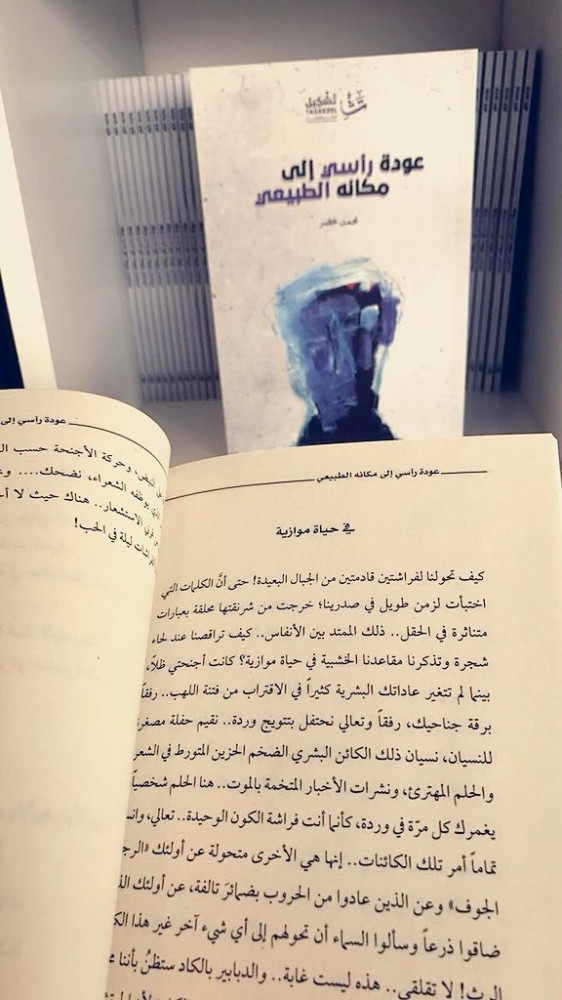 تشكيل
TASHKEEL
عودة رأسي إلى
مكانه الطبيعي
محمد خضر
عودة راسي إلى
وحركة الأجنحة حسب
يوظفه الشعراء، نضحك....
الاستشعار.. هناك حيث لا
ليلة في الحب!
عودة راسي إلى مكانه الطبيعي
في حياة موازية
كيف تحولنا لفراشتين قادمتين من الجبال البعيدة! حتى أنَّ الكلمات التي
اختبأت لزمن طويل في صدرينا؛ خرجت من شرنقتها محلقة بعبارات
متناثرة في الحقل.. ذلك الممتد بين الأنفاس.. كيف تراقصنا عند لحاء
شجرة وتذكرنا مقاعدنا الخشبية في حياة موازية؟ كانت أجنحتي ظلاً،
بينما لم تتغير عاداتك البشرية كثيراً في الاقتراب من فتنة اللهب.. رفقاً
برقة جناحيك، رفقاً وتعالي نحتفل بتتويج وردة.. نقيم حفلة مصغرة
للنسيان، نسيان ذلك الكائن البشري الضخم الحزين المتورط في الشعر
والحلم المهترئ، ونشرات الأخبار المتخمة بالموت.. هنا الحلم شخصياً
يغمرك كل مرّة في وردة، كأنما أنت فراشة الكون الوحيدة.. تعالي،
تماماً أمر تلك الكائنات.. إنها هي الأخرى متحولة عن أولئك
الجوف» وعن الذين عادوا من الحروب بضمائرَ تالفة، عن أولئك
ضاقوا ذرعاً وسألوا السماء أن تحولهم إلى أي شيء آخر غير هذا
الرث! لا تقلقي.. هذه ليست غابة.. والدبابير بالكاد ستظنُ بأننا